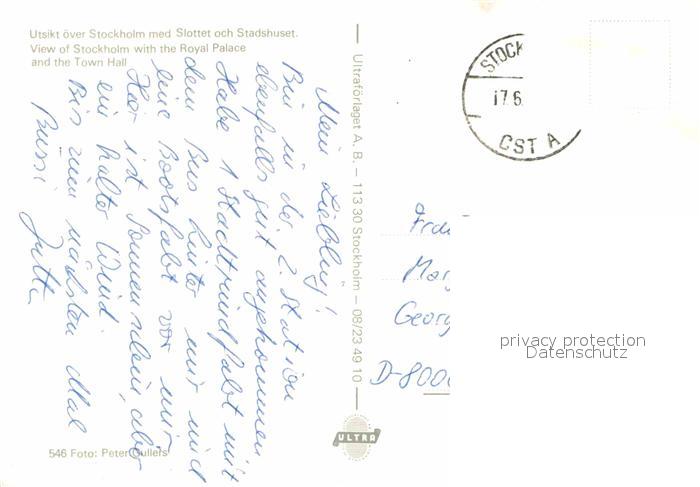 Utsikt över Stockholm med Slottet och Stadshuset.
View of Stockholm with the Royal Palace
and the Town Hall
Mein Liebling!
Bin in der 2. Station
ebenfalls gut angekommen
Habe 1 Stadtrundfahrt mit
dem Bus hinter mir und
eine Bootsfahrt vor mir
Hier ist Sonnenschein, aber
ein kalter Wind
Bis zum nächsten Mal
Bussi Jutta
546 Foto: Peter Gullers
Ultraförlaget A. B. – 113 30 Stockholm – 08/23 49 10
ULTRA
STOCK
17.6.
CST A
Frau
Mar
Georg
D-800
privacy protection
Datenschutz